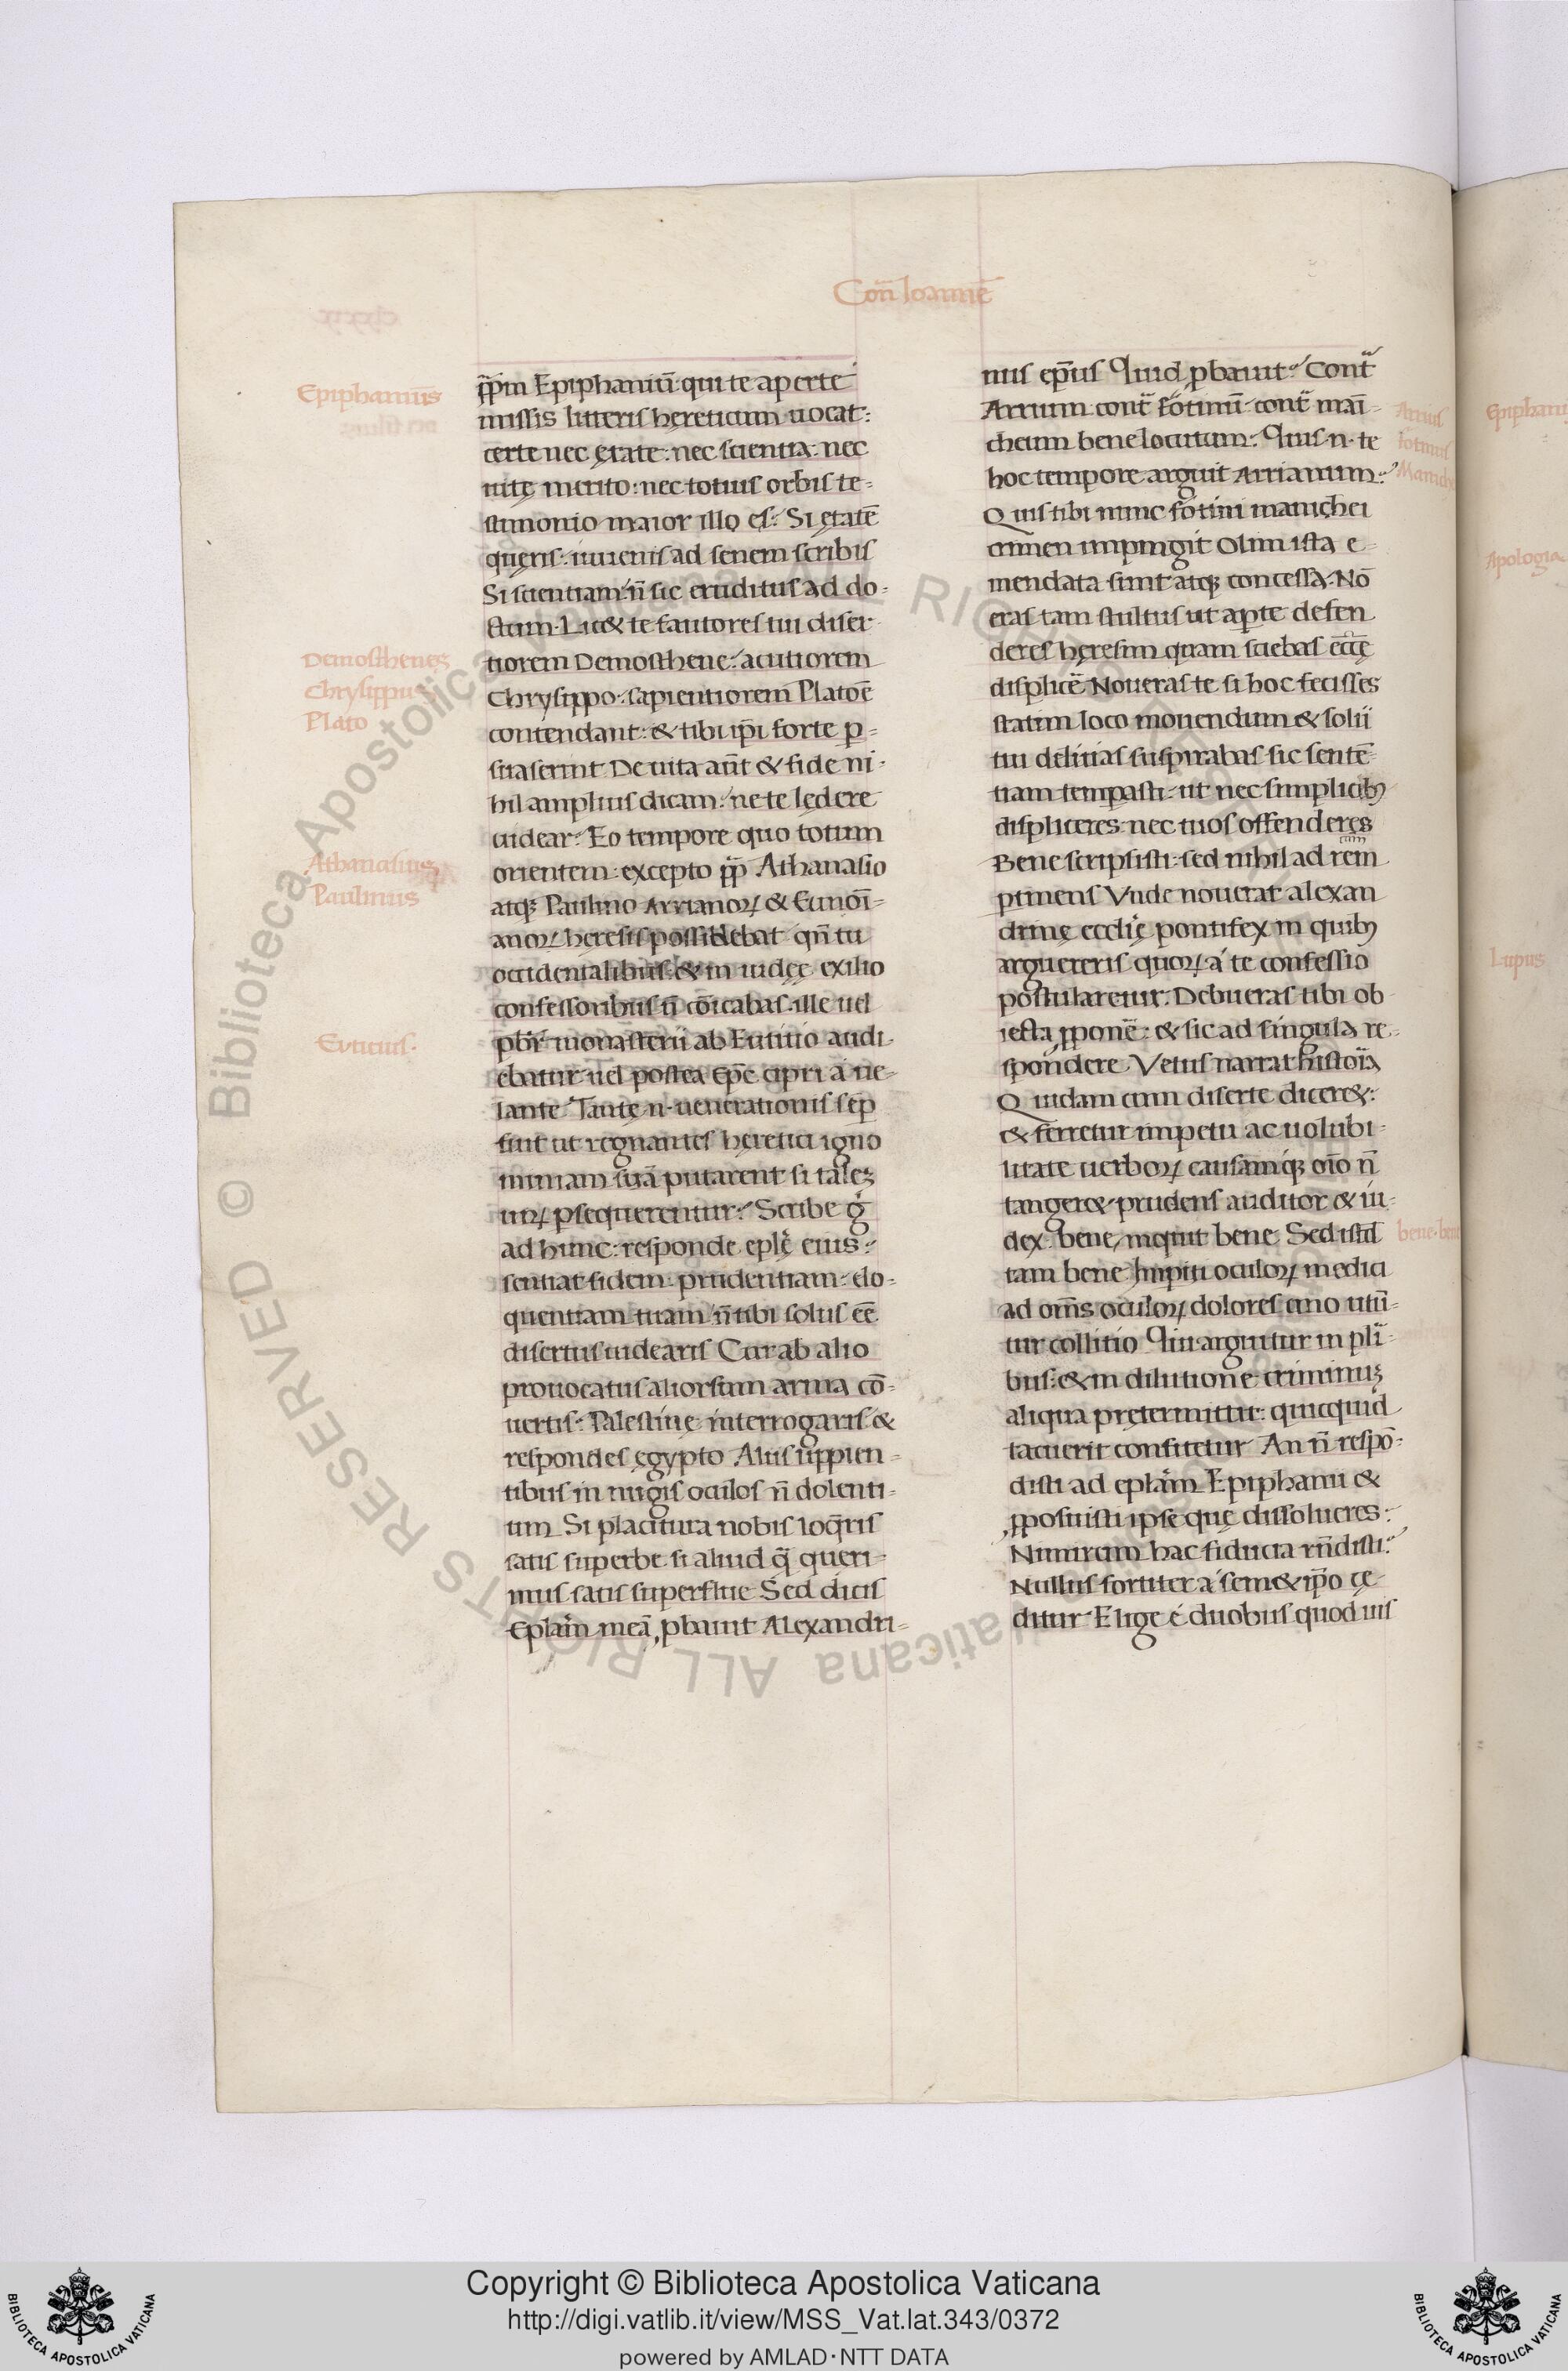 Con̄ Ioannē
Epiphanius
Demosthenes
Chrysippus
Plato
Athanasius
Paulinus
Euticius.
p̄pm Epiphaniū: qui te aperte
missis litteris hęreticum uocat:
certe nec ętate: nec scientia: nec
uitę merito: nec totius orbis te=
stimonio maior illo es: Si ętatē
quęris: iuuenis ad senem scribis
Si scientiam: n̄ sic eruditus ad do=
ctum. Lic& te fautores tui diser
tiorem Demosthene: acutiorem
Chrysippo: sapientiorem Platoē
contendant: & tibi ip̄i forte p=
suaserint. De uita aūt & fide ni=
hil amplius dicam: ne te lędere
uidear: Eo tempore quo totum
orientem: excepto p̄p Athanasio
atq; Paulino Arrianoꝝ & Eunoī=
anoꝝ heresis possidebat qn̄ tu
occidentalibus & in iudęę exilio
confessoribus n̄ cōicabas. ille uel
pb̄r monasterii ab Eutitio audi
ebatur uel postea ep̄c cipri a ue=
lante. Tantę n. uenerationis sēp
fuit ut regnantes hęretici igno
miniam suā putarent si talez
uirꝝ psequerentur: Scribe g̊
ad hunc: responde eplę̄ eius:
sentiat fidem: prudentiam: elo=
quentiam tuam: n̄ tibi solus eē
disertus uidearis Cur ab alio
prouocatus aliorsum arma cō=
uertis: Palestinę interrogaris &
respondes ęgypto Aliis lippien=
tibus in nugis oculos n̄ dolenti=
um Si placitura nobis loq̄ris
satis superbe. si aliud q̄ queri=
mus satis superflue Sed dicis
Eplām meā ꝓbauit Alexandri=
nus ep̄us Quid ꝓbauit: Cont̄
Arrium: cont̄ fotinū cont̄ maī=
cheum bene locutum. Quis .n. te
hoc tempore arguit Arrianum:
Quis tibi nunc fotini manichei
crimen impingit Olim ista e=
mendata sunt atq; concessa. Nō
eras tam stultus ut aꝑte defen
deres hęresim quam sciebas ec̄cę
displicē Noueras te si hoc fecisses
statim loco mouendum & solii
tui delitias suspirabas sic sentē=
tiam tempasti. ut nec simplicib;
displiceres. nec tuos offenderes
Bene scripsisti: sed nihil ad rem
ꝑtinens Vnde nouerat alexan
drinę ecclię pontifex in quib;
arguereris. quoꝝ a te confessio
postularetur. Debueras tibi ob
iecta ꝓponē: & sic ad singula re=
spondere. Vetus narrat histoīa
Quidam cum diserte dicer&:
& ferretur impetu ac uolubi=
litate uerboꝝ causamq; oīo n̄
tanger& prudens auditor & iu=
dex: bene, inquit bene. Sed istd̄
tam bene Impiti oculoꝝ medici
ad om̄s oculoꝝ dolores uno utū=
tur collirio Qui arguitur in plī=
bus: & in dilutione criminuz
aliqua prętermittit: quicquid
tacuerit confitetur An n̄ respō=
disti ad eplām Epiphanii &
ꝓposuisti ipse quę dissolueres:
Nimirum hac fiducia rn̄disti:
Nullus fortiter a sem& ip̄o cę=
ditur Elige e duobus quod uis
Arrius
fotinus
bene. bene
Epiphani
Apologia
Lupus
Copyright © Biblioteca Apostolica Vaticana
http://digi.vatlib.it/view/MSS_Vat.lat.343/0372
powered by AMLAD·NTT DATA
BIBLIOTECA APOSTOLICA VATICANA
BIBLIOTECA APOSTOLICA VATICANA